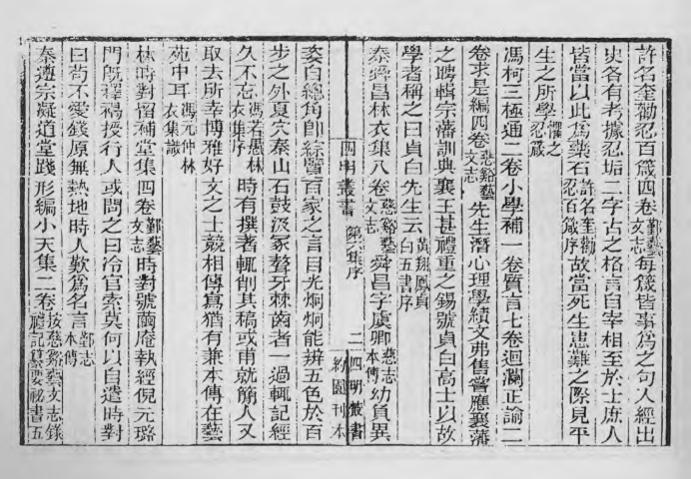 許名奎勸忍百箴四卷鄞藝文志每箴皆事爲之句入經出
史各有考據忍垢二字古之格言自宰相至於士庶人
皆當以此爲藥石許名奎勸忍百箴序故當死生患難之際見平
生之所學懼之忍箴
馮柯三極通二卷小學補一卷質言七卷迴瀾正諭二
卷求是編四卷慈谿藝文志先生潛心理學績文弗售嘗應襄藩
之聘輯宗藩訓典襄王甚禮重之錫號貞白高士以故
學者稱之曰貞白先生云黃翔鳳貞白五書序
秦舜昌林衣集八卷慈谿藝文志舜昌字虞卿慈志本傳幼負異
四明叢書 第六集序 二 四明叢書 約園刊本
姿自總角卽綜覽百家之言目光炯炯能辨五色於百
步之外夏穴泰山石鼓汲冢聱牙棘齒者一過輒記經
久不忘馮若愚林衣集序時有撰著輒削其稿或甫就簡人又
取去所幸博雅好文之士競相傳寫猶有兼本傳在藝
苑中耳馮元仲林衣集識
林時對留補堂集四卷鄞藝文志時對號繭庵執經倪元璐
門既釋褐授行人或問之曰冷官索莫何以自遣時對
曰苟不愛錢原無熱地時人歎爲名言鄞志本傳
秦遵宗凝道堂踐形編小天集二卷按慈谿藝文志錄禮記纂要祕書五